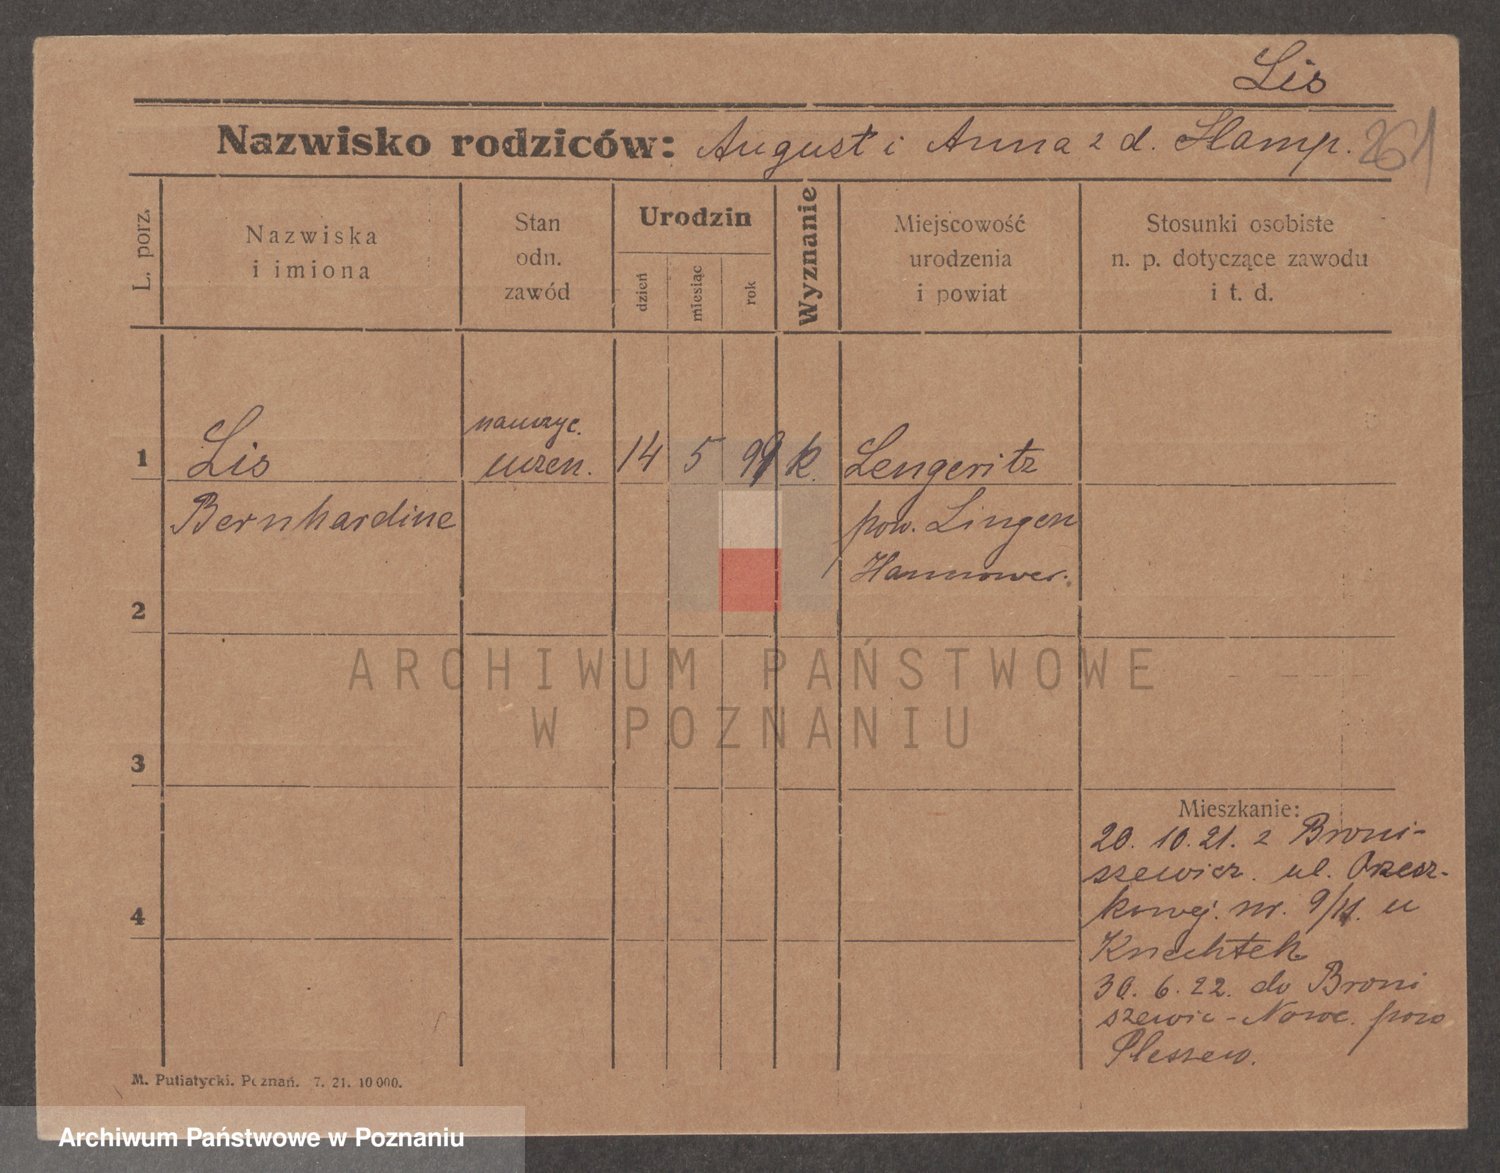 Lis
Nazwisko rodziców: August i Anna z d. Hamp. 261
L. porz.
Nazwiska
i imiona
Stan
odn.
zawód
Urodzin
dzień
miesiąc
rok
Wyznanie
Miejscowość
urodzenia
i powiat
Stosunki osobiste
n. p. dotyczące zawodu
i t. d.
1
Lis
Bernhardine
nauczyc.
uczen.
14 5 99 k.
Lengeritz
pow. Lingen
Hannower.
2
3
4
Mieszkanie:
20. 10. 21. z Broni-
szewicz. ul. Orzesz-
kowej. nr. 9/11. u
Knechtek
30. 6. 22. do Broni
szewic - Nowe. pow
Pleszew.
M. Putiatycki. Poznań. 7. 21. 10 000.
ARCHIWUM PAŃSTWOWE
W POZNANIU
Archiwum Państwowe w Poznaniu